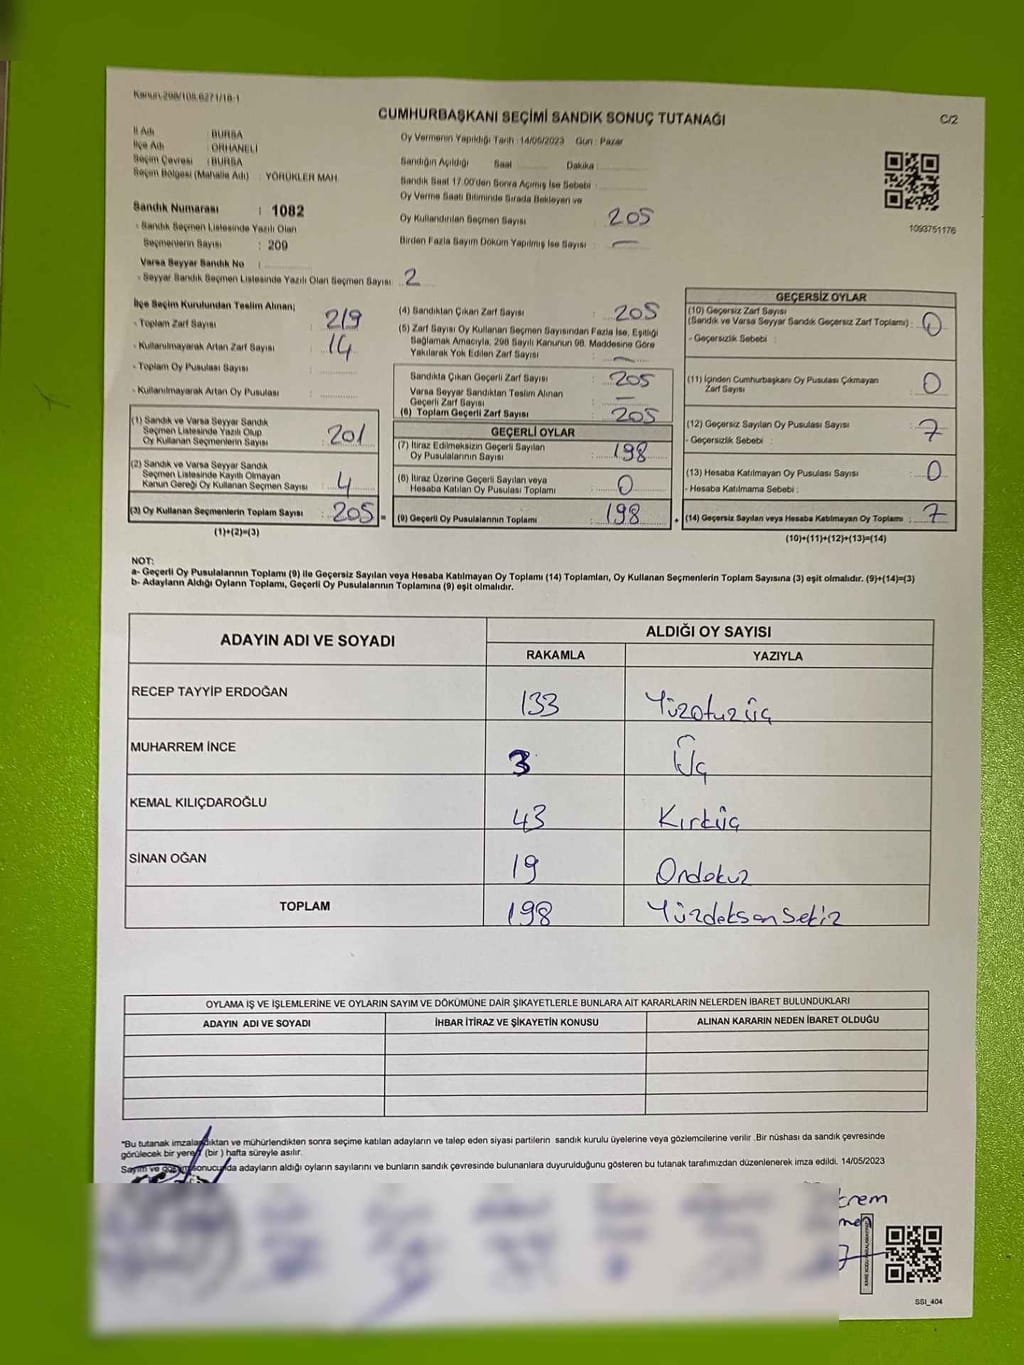 Kanun:298/108,6271/18-1
CUMHURBAŞKANI SEÇİMİ SANDIK SONUÇ TUTANAĞI
C/2
İl Adı : BURSA
İlçe Adı : ORHANELİ
Seçim Çevresi : BURSA
Seçim Bölgesi (Mahalle Adı) : YÖRÜKLER MAH.
Sandık Numarası : 1082
- Sandık Seçmen Listesinde Yazılı Olan
Seçmenlerin Sayısı : 209
Varsa Seyyar Sandık No :
- Seyyar Sandık Seçmen Listesinde Yazılı Olan Seçmen Sayısı: 2
Oy Vermenin Yapıldığı Tarih : 14/05/2023 Gün : Pazar
Sandığın Açıldığı Saat Dakika :
Sandık Saat 17.00'den Sonra Açımış İse Sebebi :
Oy Verme Saati Bitiminde Sırada Bekleyen ve
Oy Kullandırılan Seçmen Sayısı : 205
Birden Fazla Sayım Döküm Yapılmış İse Sayısı : —
1093751176
İlçe Seçim Kurulundan Teslim Alınan;
- Toplam Zarf Sayısı : 219
- Kullanılmayarak Artan Zarf Sayısı : 14
- Toplam Oy Pusulası Sayısı :
- Kullanılmayarak Artan Oy Pusulası :
(1) Sandık ve Varsa Seyyar Sandık
Seçmen Listesinde Yazılı Olup
Oy Kullanan Seçmenlerin Sayısı : 201
(2) Sandık ve Varsa Seyyar Sandık
Seçmen Listesinde Kayıtlı Olmayan
Kanun Gereği Oy Kullanan Seçmen Sayısı : 4
(3) Oy Kullanan Seçmenlerin Toplam Sayısı : 205 =
(1)+(2)=(3)
(4) Sandıktan Çıkan Zarf Sayısı : 205
(5) Zarf Sayısı Oy Kullanan Seçmen Sayısından Fazla İse, Eşitliği
Sağlamak Amacıyla, 298 Sayılı Kanunun 98. Maddesine Göre
Yakılarak Yok Edilen Zarf Sayısı : —
Sandıkta Çıkan Geçerli Zarf Sayısı : 205
Varsa Seyyar Sandıktan Teslim Alınan
Geçerli Zarf Sayısı : —
(6) Toplam Geçerli Zarf Sayısı : 205
GEÇERLİ OYLAR
(7) İtiraz Edilmeksizin Geçerli Sayılan
Oy Pusulalarının Sayısı : 198
(8) İtiraz Üzerine Geçerli Sayılan veya
Hesaba Katılan Oy Pusulası Toplamı : 0
(9) Geçerli Oy Pusulalarının Toplamı : 198 +
GEÇERSİZ OYLAR
(10) Geçersiz Zarf Sayısı
(Sandık ve Varsa Seyyar Sandık Geçersiz Zarf Toplamı) : 0
- Geçersizlik Sebebi :
(11) İçinden Cumhurbaşkanı Oy Pusulası Çıkmayan
Zarf Sayısı : 0
(12) Geçersiz Sayılan Oy Pusulası Sayısı : 7
- Geçersizlik Sebebi :
(13) Hesaba Katılmayan Oy Pusulası Sayısı : 0
- Hesaba Katılmama Sebebi :
(14) Geçersiz Sayılan veya Hesaba Katılmayan Oy Toplamı : 7
(10)+(11)+(12)+(13)=(14)
NOT:
a- Geçerli Oy Pusulalarının Toplamı (9) ile Geçersiz Sayılan veya Hesaba Katılmayan Oy Toplamı (14) Toplamları, Oy Kullanan Seçmenlerin Toplam Sayısına (3) eşit olmalıdır. (9)+(14)=(3)
b- Adayların Aldığı Oyların Toplamı, Geçerli Oy Pusulalarının Toplamına (9) eşit olmalıdır.
ADAYIN ADI VE SOYADI
ALDIĞI OY SAYISI
RAKAMLA YAZIYLA
RECEP TAYYİP ERDOĞAN 133 Yüzotuzüç
MUHARREM İNCE 3 Üç
KEMAL KILIÇDAROĞLU 43 Kırküç
SİNAN OĞAN 19 Ondokuz
TOPLAM 198 Yüzdoksan sekiz
OYLAMA İŞ VE İŞLEMLERİNE VE OYLARIN SAYIM VE DÖKÜMÜNE DAİR ŞİKAYETLERLE BUNLARA AİT KARARLARIN NELERDEN İBARET BULUNDUKLARI
ADAYIN ADI VE SOYADI İHBAR İTİRAZ VE ŞİKAYETİN KONUSU ALINAN KARARIN NEDEN İBARET OLDUĞU
"Bu tutanak imzalandıktan ve mühürlendikten sonra seçime katılan adayların ve talep eden siyasi partilerin sandık kurulu üyelerine veya gözlemcilerine verilir .Bir nüshası da sandık çevresinde
görülecek bir yere 1 (bir ) hafta süreyle asılır.
Sayım ve döküm sonucunda adayların aldığı oyların sayılarını ve bunların sandık çevresinde bulunanlara duyurulduğunu gösteren bu tutanak tarafımızdan düzenlenerek imza edildi. 14/05/2023
SSI_404